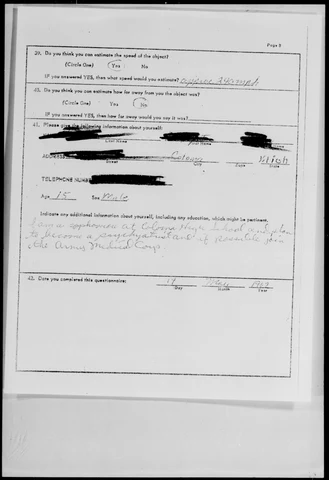 Page 8
39. Do you think you can estimate the speed of the object?
(Circle One) Yes No
IF you answered YES, then what speed would you estimate?
40. Do you think you can estimate how far away from you the object was?
(Circle One) Yes No
IF you answered YES, then how far away would you say it was?
41. Please give the following information about yourself:
Last Name First Name
ADDRESS Coloma Mich
Street City State
TELEPHONE NUMBER
Age 15 Sex Male
Indicate any additional information about yourself, including any education, which might be pertinent.
I am a sophomore at Coloma High School and plan
to become a psychiatrist and if possible join
the Army Medical Corps.
42. Date you completed this questionnaire: 17 May
Day Month Year